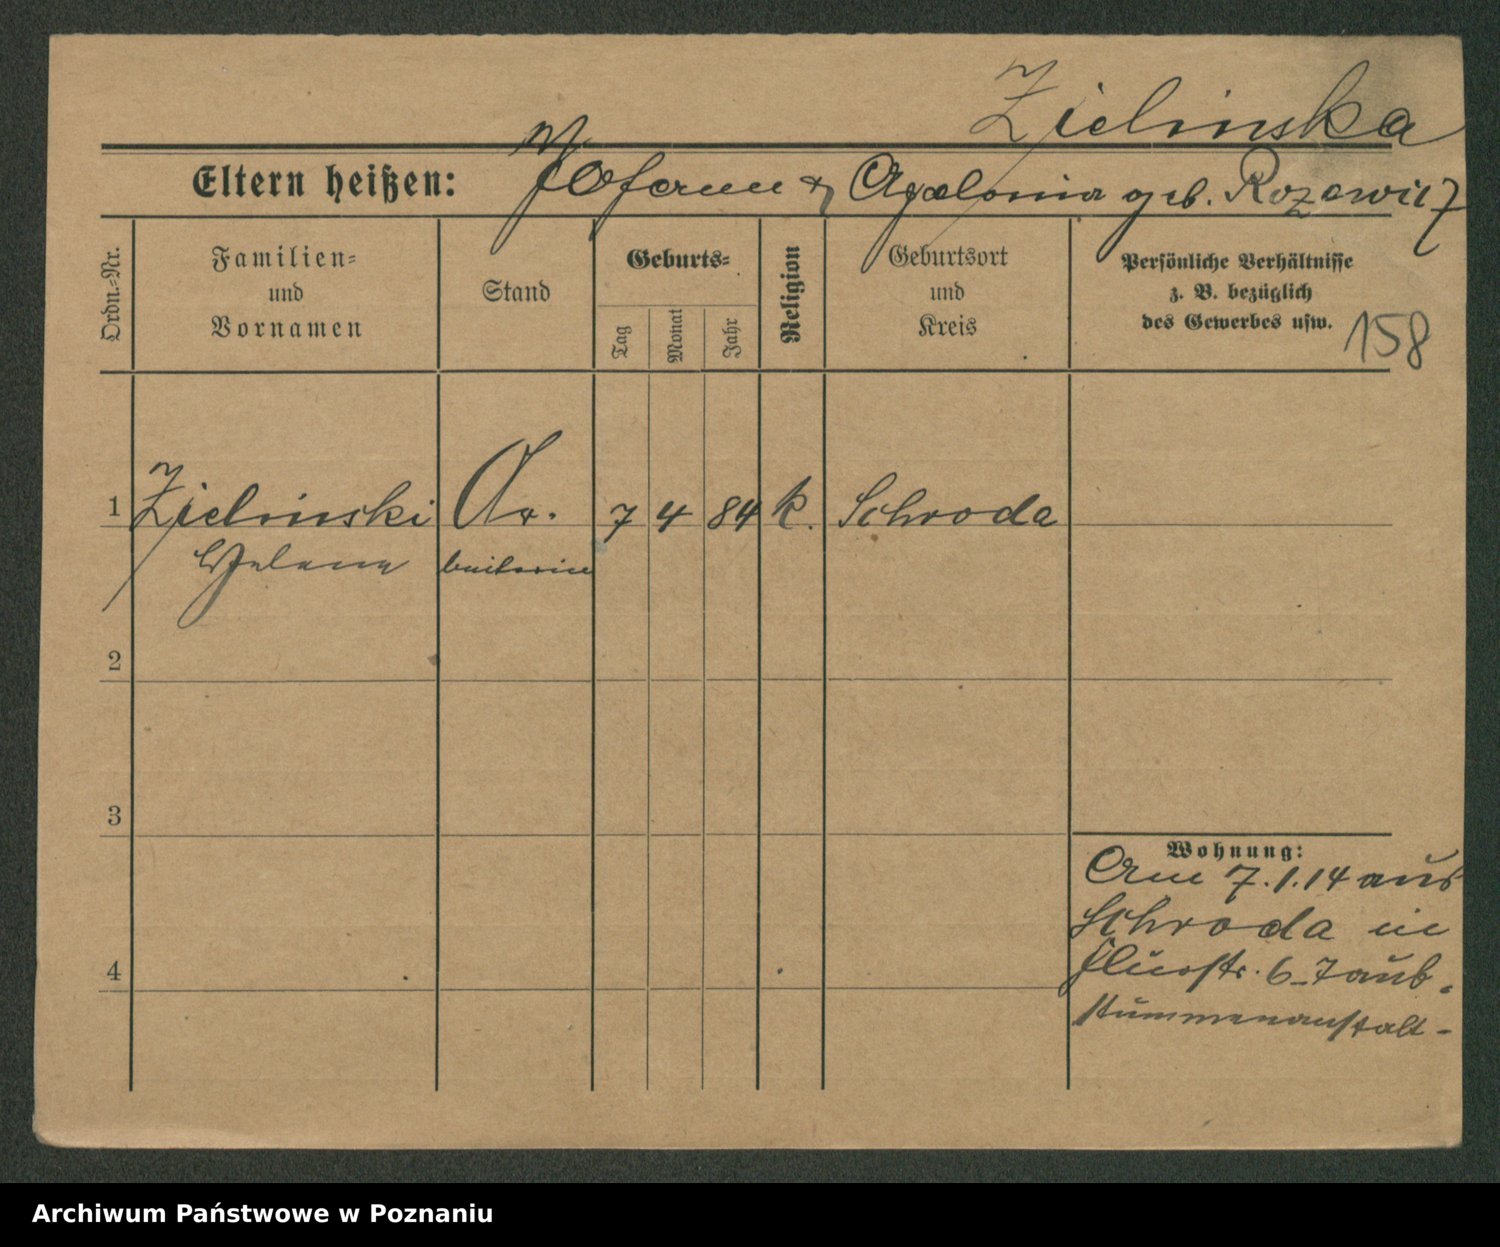 Zielinska
Eltern heißen: Johann & Apolonia geb. Rozewicz
Ordn.-Nr.
Familien-
und
Vornamen
Stand
Geburts-
Tag
Monat
Jahr
Religion
Geburtsort
und
Kreis
Persönliche Verhältnisse
z. B. bezüglich
des Gewerbes usw.
158
1 Zielinski Ar. 7 4 84 k. Schroda
beiterin
2
3
4
Wohnung:
Am 7.1.14 aus
Schroda in
6 Taub-
stummenanstalt-
Archiwum Państwowe w Poznaniu